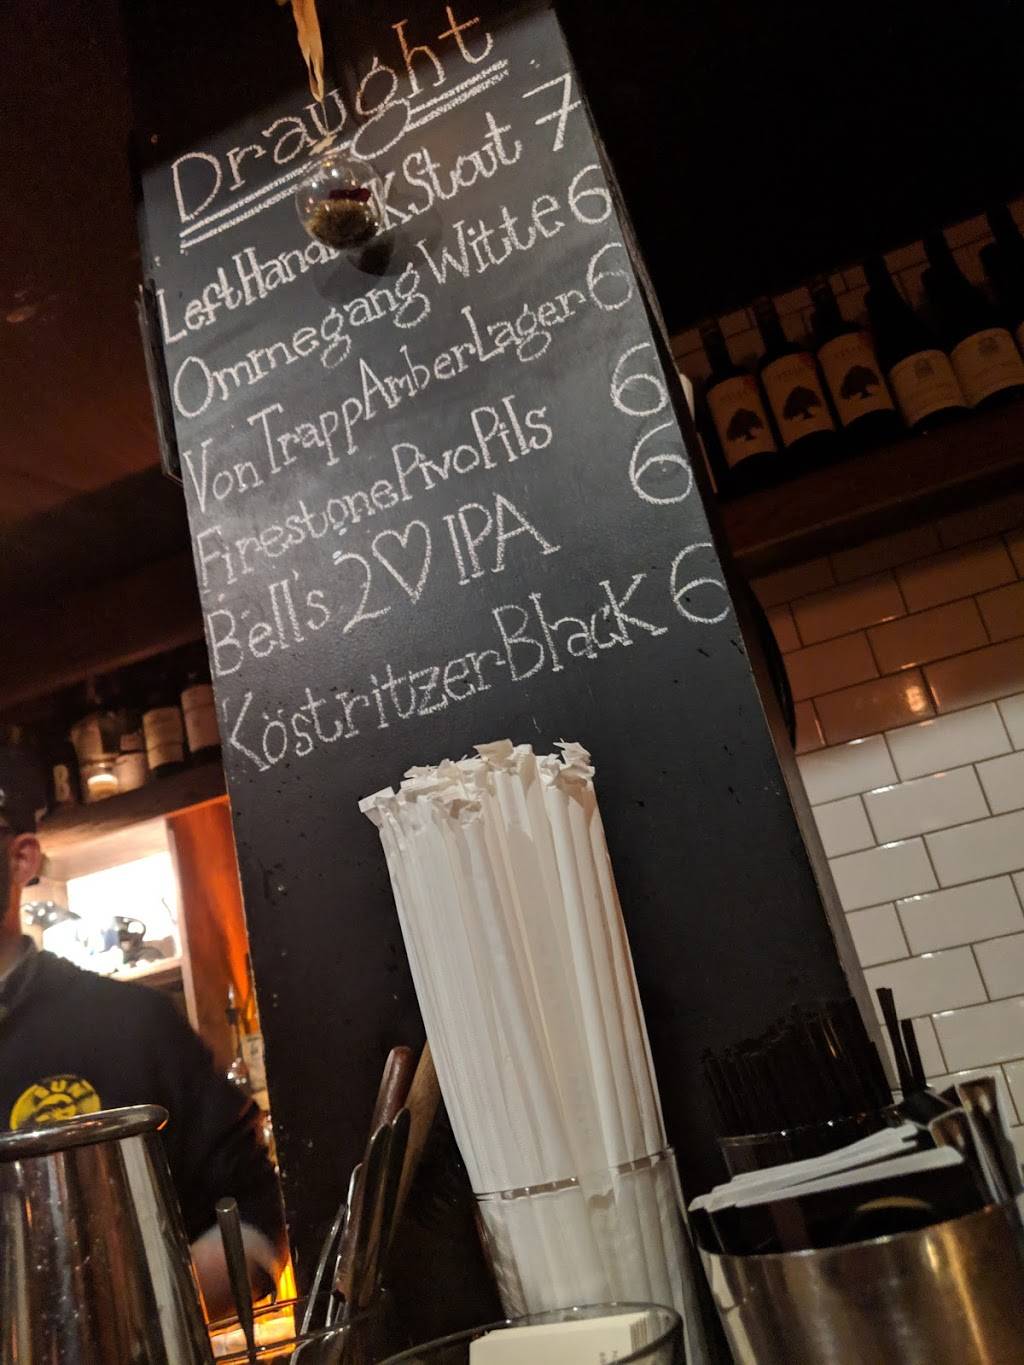 Draught
Left Hand Stout 7
Ommegang Witte 6
Von Trapp Amber Lager 6
Firestone Pivo Pils 6
Bell's 2♡ IPA 6
Köstritzer Black 6
SUN